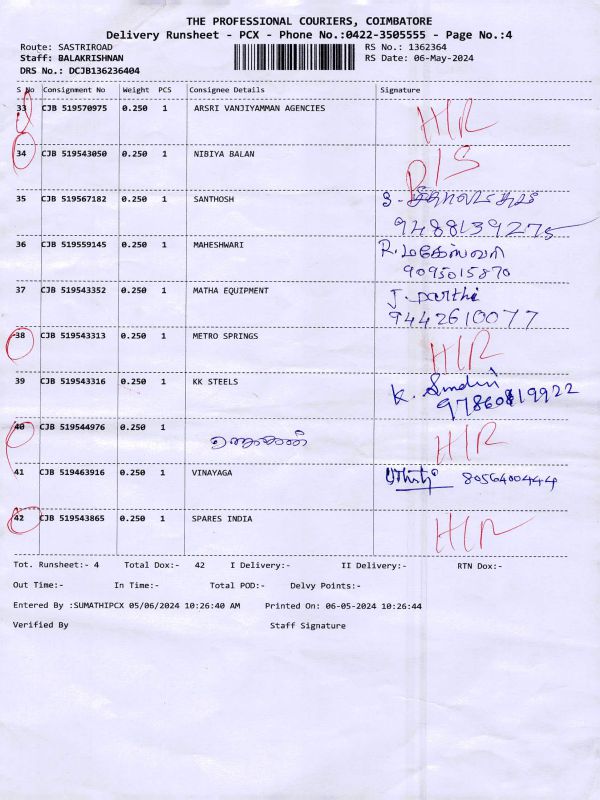 THE PROFESSIONAL COURIERS, COIMBATORE
Delivery Runsheet - PCX - Phone No.:0422-3505555 - Page No.:4
Route: SASTRIROAD RS No.: 1362364
Staff: BALAKRISHNAN RS Date: 06-May-2024
DRS No.: DCJB136236404
S No Consignment No Weight PCS Consignee Details Signature
33 CJB 519570975 0.250 1 ARSRI VANJIYAMMAN AGENCIES H/R
34 CJB 519543050 0.250 1 NIBIYA BALAN D/S
35 CJB 519567182 0.250 1 SANTHOSH
9488139275
36 CJB 519559145 0.250 1 MAHESHWARI R. மகேஸ்வரி
9095015870
37 CJB 519543352 0.250 1 MATHA EQUIPMENT J. Parthi
9442610077
38 CJB 519543313 0.250 1 METRO SPRINGS H/R
39 CJB 519543316 0.250 1 KK STEELS K.
97860819922
40 CJB 519544976 0.250 1 H/R
41 CJB 519463916 0.250 1 VINAYAGA 8056400444
42 CJB 519543865 0.250 1 SPARES INDIA H/R
Tot. Runsheet:- 4 Total Dox:- 42 I Delivery:- II Delivery:- RTN Dox:-
Out Time:- In Time:- Total POD:- Delvy Points:-
Entered By :SUMATHIPCX 05/06/2024 10:26:40 AM Printed On: 06-05-2024 10:26:44
Verified By Staff Signature